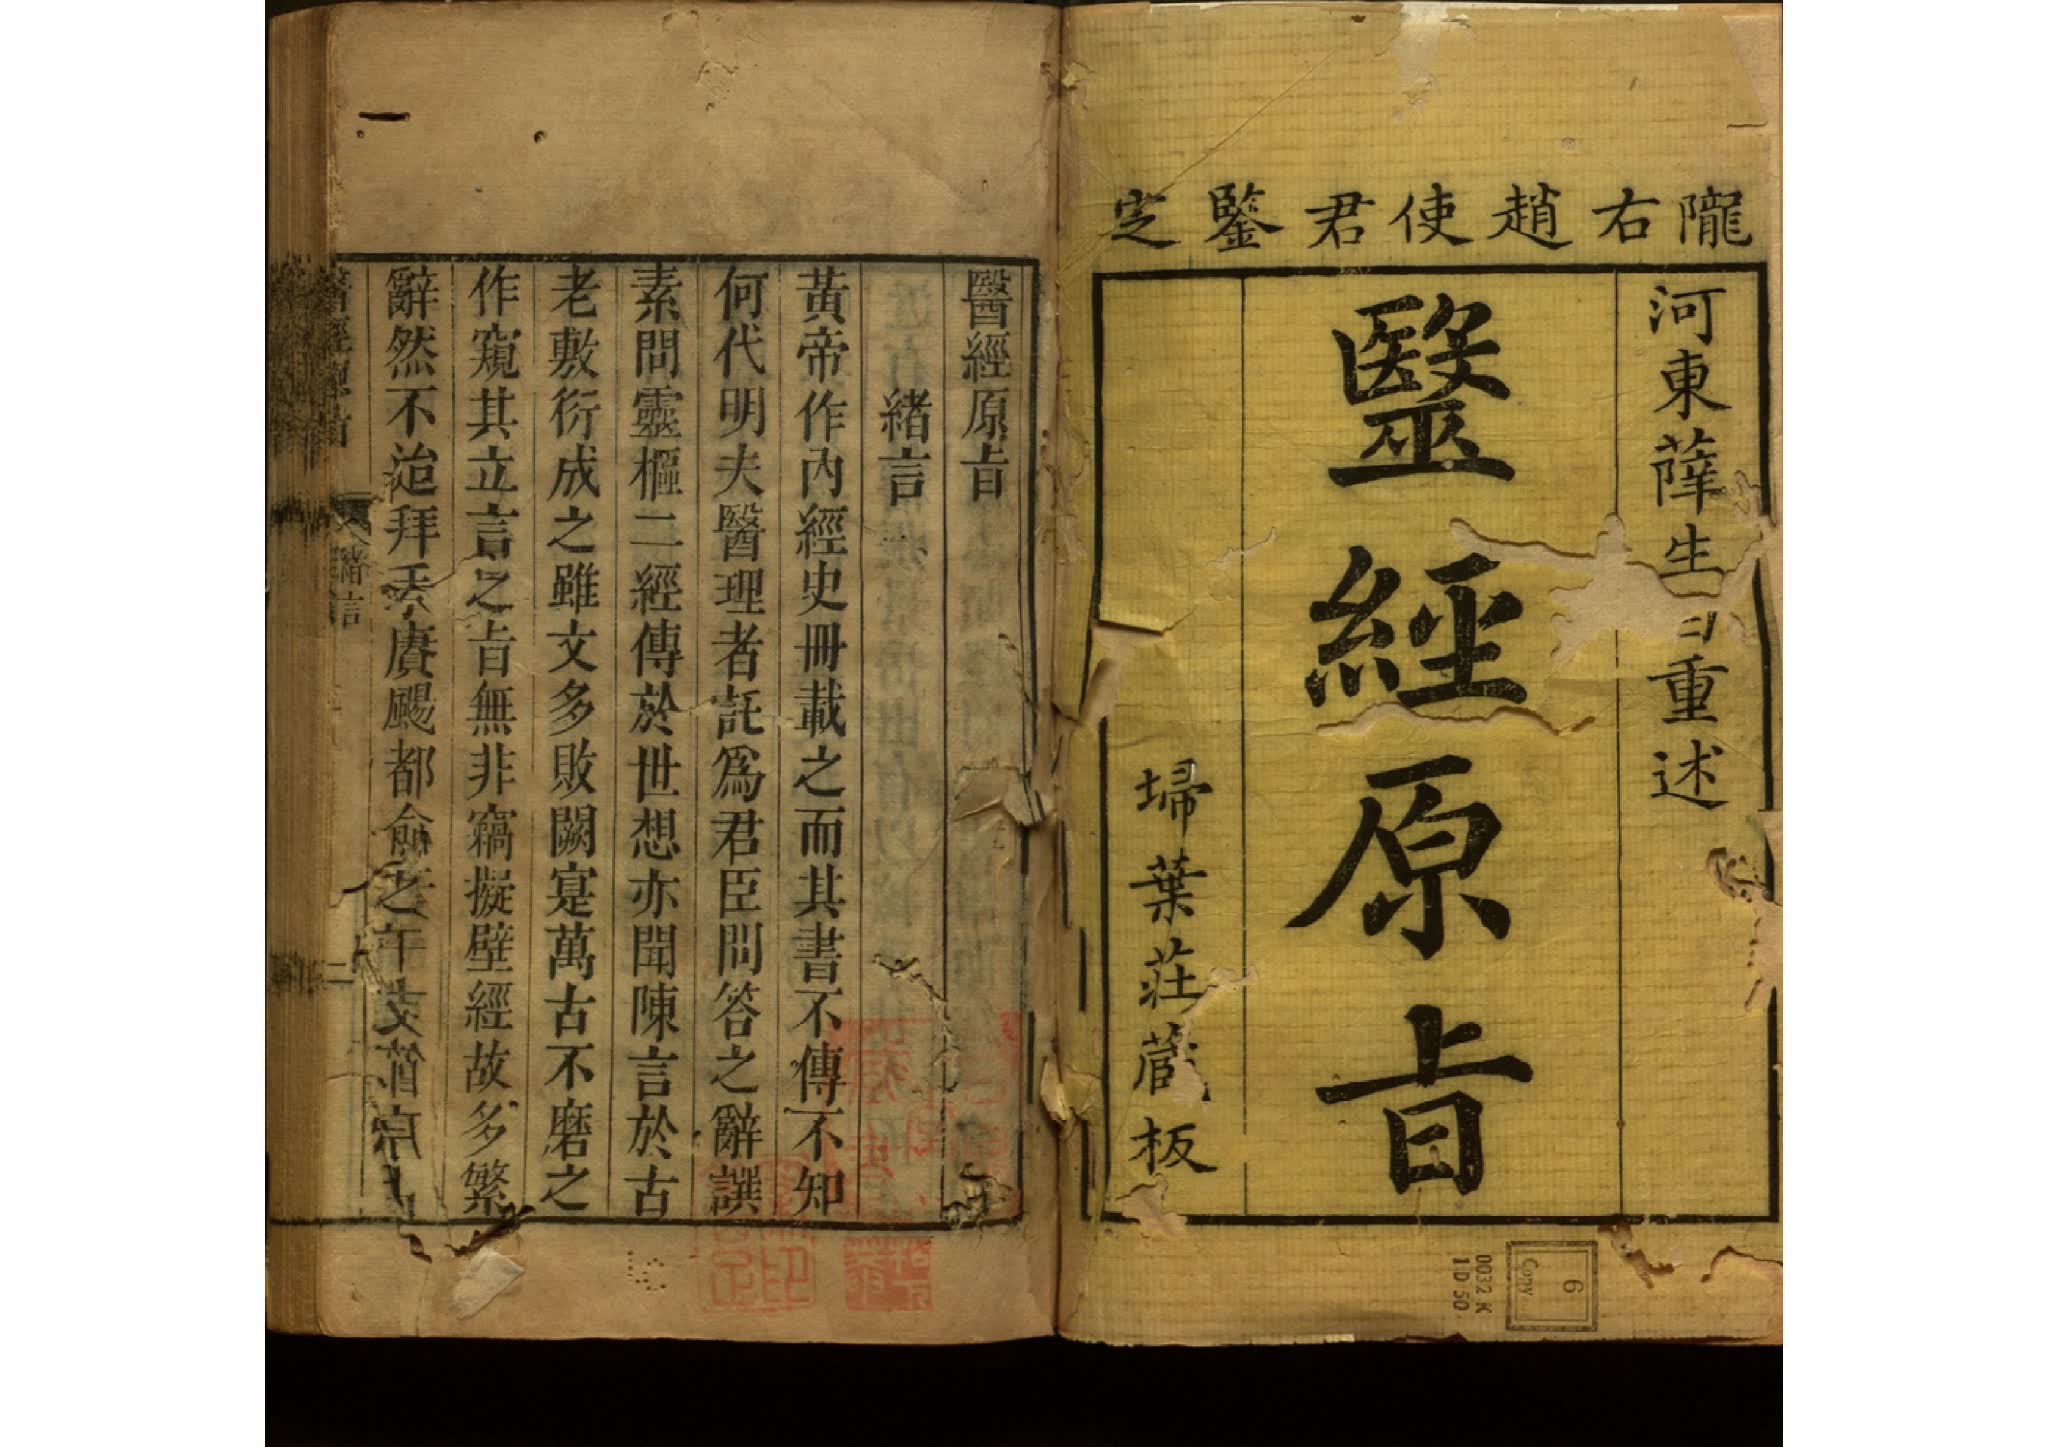 隴右趙使君鑒定
河東薛生重述
毉經原㫖
埽葉莊藏板
醫經原㫖
緒言
黃帝作內經史冊載之而其書不傳不知
何代明夫醫理者託爲君臣問答之辭譔
素問靈樞二經傳於世想亦聞陳言於古
老敷衍成之雖文多敗闕寔萬古不磨之
作窺其立言之㫖無非竊擬壁經故多繁
辭然不迨拜賡颺都俞之
醫經原㫖 緒言
6
Copy
0032 K
1 D 50